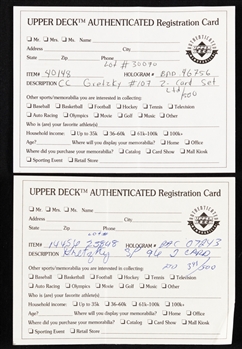 UPPER DECK™ AUTHENTICATED Registration Card
☐ Mr. ☐ Mrs. ☐ Ms. Name
Address City
State Zip Day Phone
Lot # 30090
ITEM# 40148 HOLOGRAM# BAD 96756
DESCRIPTION CC Gretzky #107 2-Card Set
Ltd/500
Other sports/memorabilia you are interested in collecting:
☐ Baseball ☐ Basketball ☐ Football ☐ Hockey ☐ Tennis ☐ Television
☐ Auto Racing ☐ Olympics ☐ Movie ☐ Golf ☐ Music ☐ Other
Who is (are) your favorite athlete(s)
Household income: ☐ Up to 35k ☐ 36-60k ☐ 61k-100k ☐ 100k+
Age? Where will you display your memorabilia? ☐ Home ☐ Office
Where did you purchase your memorabilia? ☐ Catalog ☐ Card Show ☐ Mall Kiosk
☐ Sporting Event ☐ Retail Store
UPPER DECK™ AUTHENTICATED Registration Card
☐ Mr. ☐ Mrs. ☐ Ms. Name
Address City
State Zip Day Phone
Lot#
ITEM# HOLOGRAM#
DESCRIPTION Gretzky SP 96 2 CARD
/500
Other sports/memorabilia you are interested in collecting:
☐ Baseball ☐ Basketball ☐ Football ☐ Hockey ☐ Tennis ☐ Television
☐ Auto Racing ☐ Olympics ☐ Movie ☐ Golf ☐ Music ☐ Other
Who is (are) your favorite athlete(s)
Household income: ☐ Up to 35k ☐ 36-60k ☐ 61k-100k ☐ 100k+
Age? Where will you display your memorabilia? ☐ Home ☐ Office
Where did you purchase your memorabilia? ☐ Catalog ☐ Card Show ☐ Mall Kiosk
☐ Sporting Event ☐ Retail Store